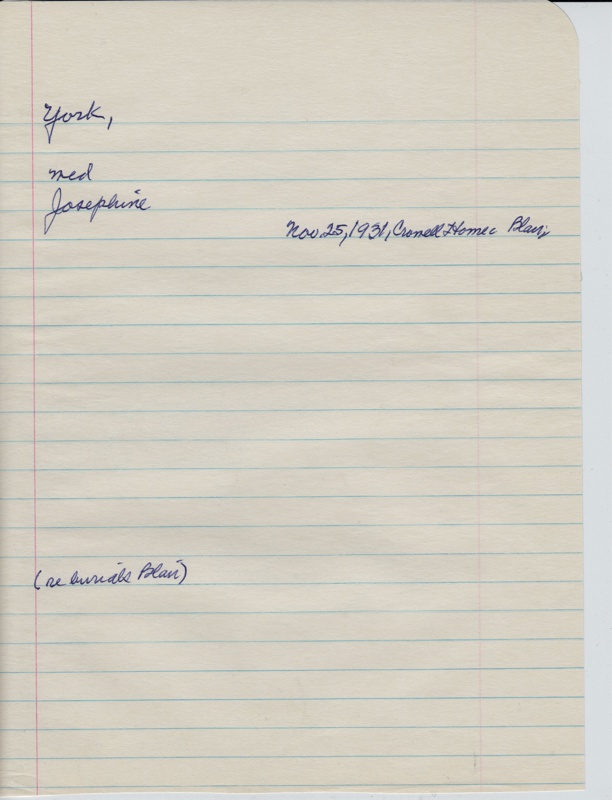 York,
Ned
Josephine
Nov. 25, 1931, Crowell Home Blair
(re burials Blair)